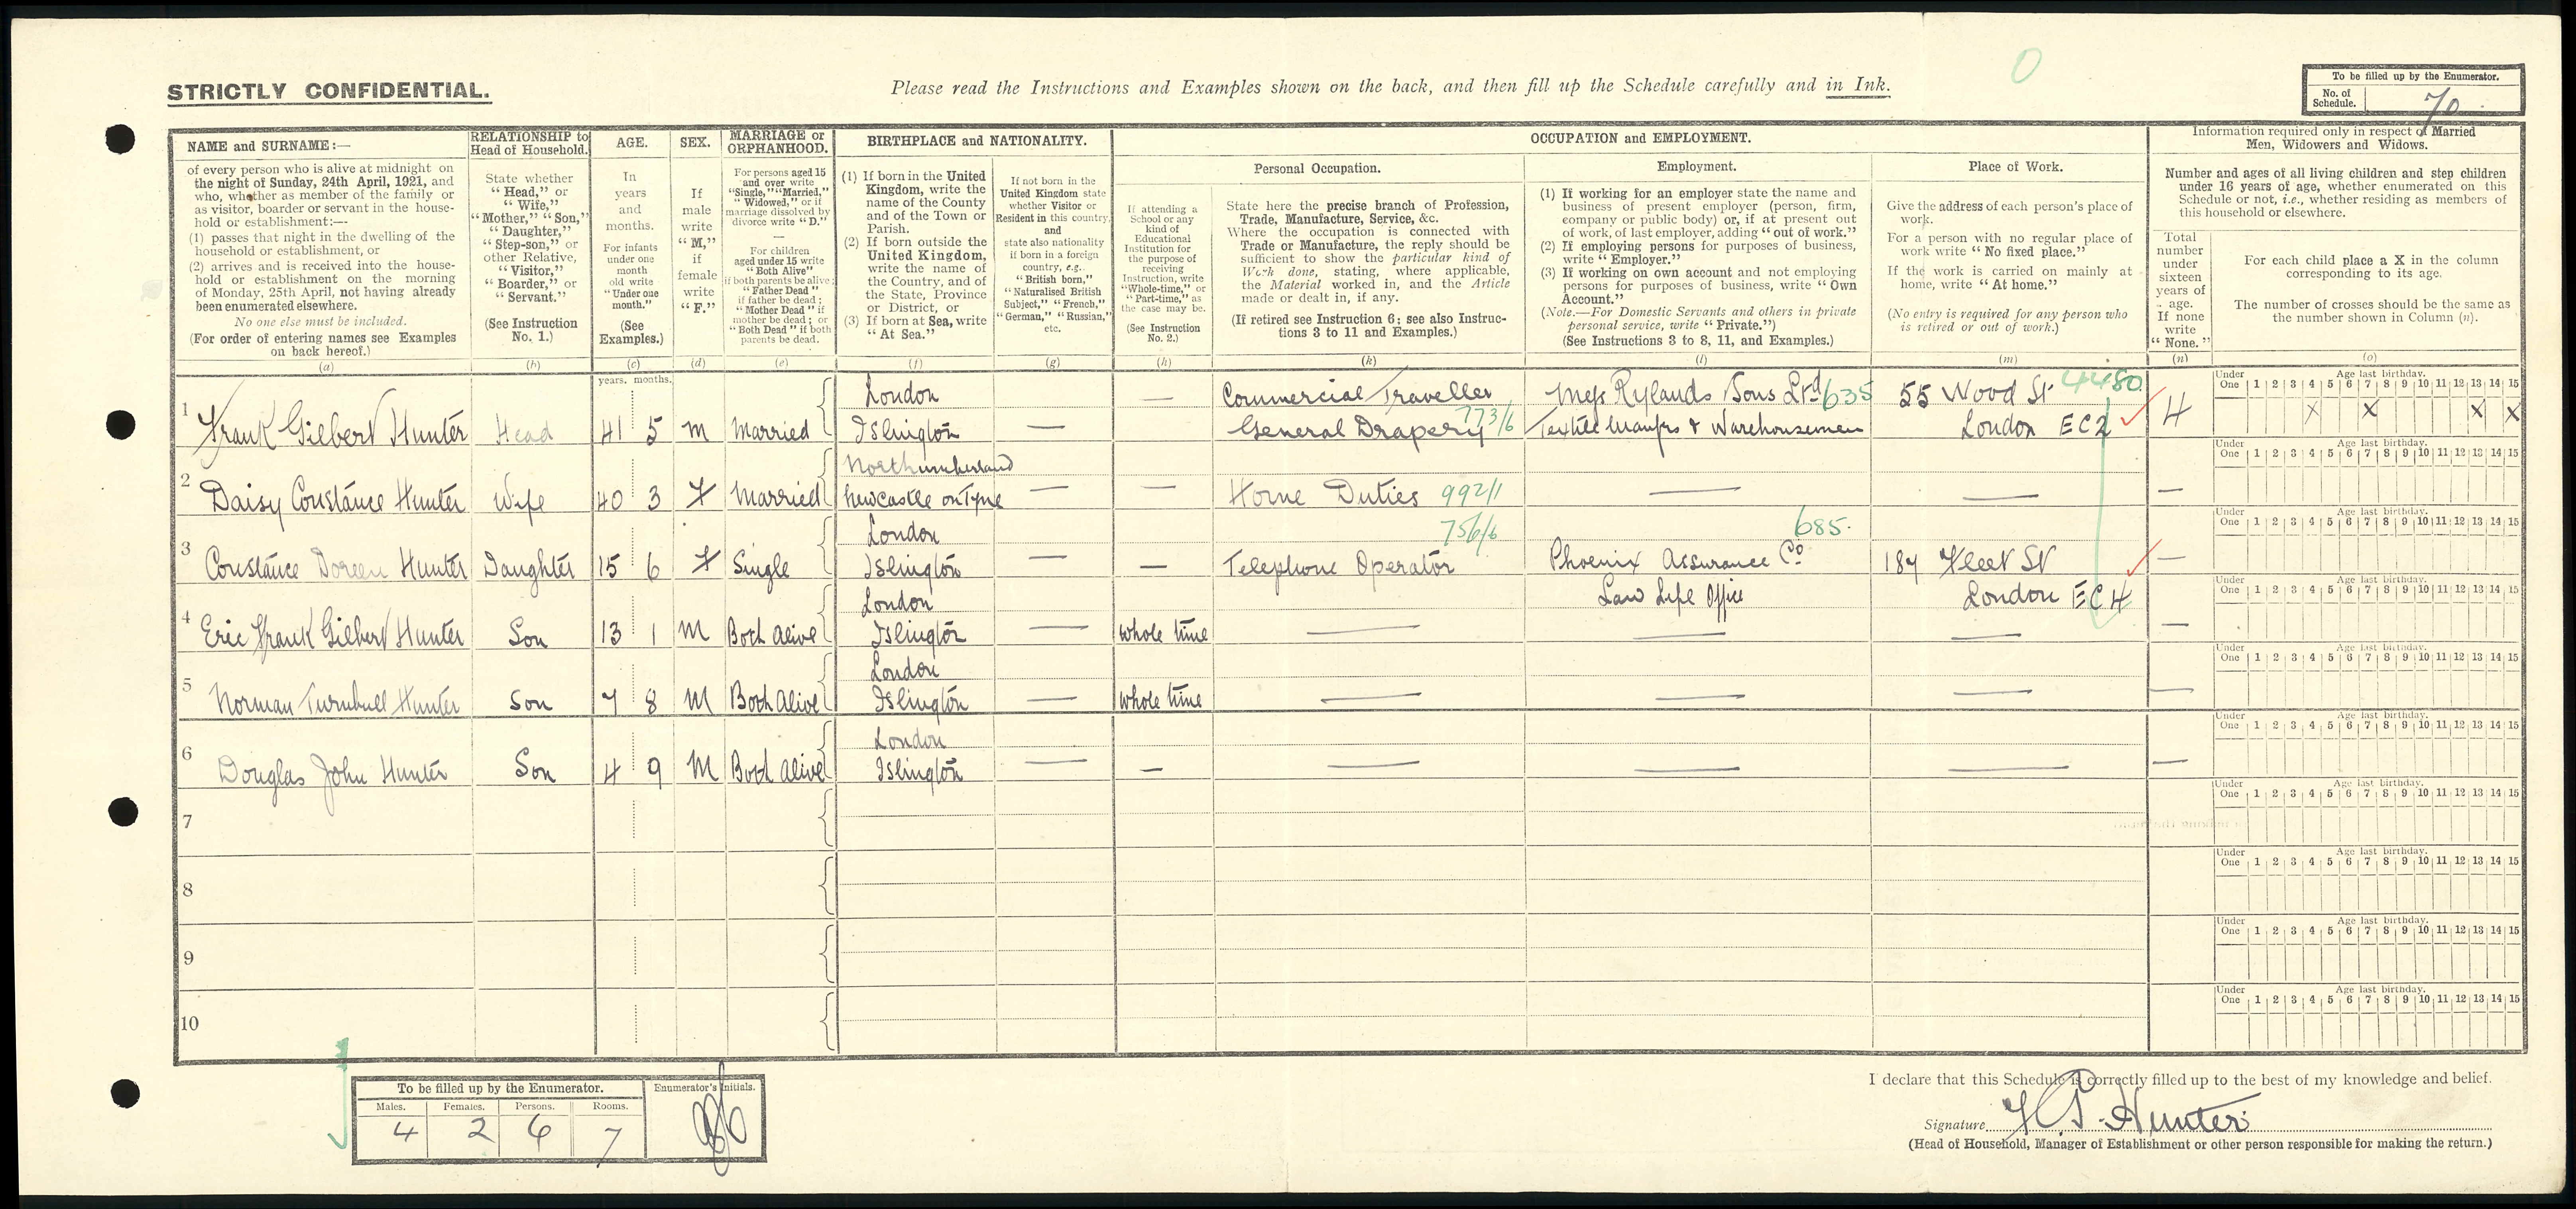 STRICTLY CONFIDENTIAL.
Please read the Instructions and Examples shown on the back, and then fill up the Schedule carefully and in Ink.
0
To be filled up by the Enumerator.
No. of Schedule. 70
NAME and SURNAME:—
of every person who is alive at midnight on
the night of Sunday, 24th April, 1921, and
who, whether as member of the family or
as visitor, boarder or servant in the house-
hold or establishment:—
(1) passes that night in the dwelling of the
household or establishment, or
(2) arrives and is received into the house-
hold or establishment on the morning
of Monday, 25th April, not having already
been enumerated elsewhere.
No one else must be included.
(For order of entering names see Examples
on back hereof.)
(a)
RELATIONSHIP to
Head of Household.
State whether
"Head," or
"Wife,"
"Mother," "Son,"
"Daughter,"
"Step-son," or
other Relative,
"Visitor,"
"Boarder," or
"Servant."
(See Instruction
No. 1.)
(b)
AGE.
In
years
and
months.
For infants
under one
month
old write
"Under one
month."
(See
Examples.)
(c)
SEX.
If
male
write
"M,"
if
female
write
"F."
(d)
MARRIAGE or
ORPHANHOOD.
For persons aged 15
and over write
"Single," "Married,"
"Widowed," or if
marriage dissolved by
divorce write "D."
—
For children
aged under 15 write
"Both Alive"
if both parents be alive;
"Father Dead"
if father be dead;
"Mother Dead" if
mother be dead; or
"Both Dead" if both
parents be dead.
(e)
BIRTHPLACE and NATIONALITY.
(1) If born in the United
Kingdom, write the
name of the County
and of the Town or
Parish.
(2) If born outside the
United Kingdom,
write the name of
the Country, and of
the State, Province
or District, or
(3) If born at Sea, write
"At Sea."
(f)
If not born in the
United Kingdom state
whether Visitor or
Resident in this country,
and
state also nationality
if born in a foreign
country, e.g.
"British born,"
"Naturalised British
Subject," "French,"
"German," "Russian,"
etc.
(g)
OCCUPATION and EMPLOYMENT.
If attending a
School or any
kind of
Educational
Institution for
the purpose of
receiving
Instruction, write
"Whole-time," or
"Part-time," as
the case may be.
(See Instruction
No. 2.)
(h)
Personal Occupation.
State here the precise branch of Profession,
Trade, Manufacture, Service, &c.
Where the occupation is connected with
Trade or Manufacture, the reply should be
sufficient to show the particular kind of
Work done, stating, where applicable,
the Material worked in, and the Article
made or dealt in, if any.
(If retired see Instruction 6; see also Instruc-
tions 3 to 11 and Examples.)
(k)
Employment.
(1) If working for an employer state the name and
business of present employer (person, firm,
company or public body) or, if at present out
of work, of last employer, adding "out of work."
(2) If employing persons for purposes of business,
write "Employer."
(3) If working on own account and not employing
persons for purposes of business, write "Own
Account."
(Note.—For Domestic Servants and others in private
personal service, write "Private.")
(See Instructions 3 to 8, 11, and Examples.)
(l)
Place of Work.
Give the address of each person's place of
work.
For a person with no regular place of
work write "No fixed place."
If the work is carried on mainly at
home, write "At home."
(No entry is required for any person who
is retired or out of work.)
(m)
Information required only in respect of Married
Men, Widowers and Widows.
Number and ages of all living children and step children
under 16 years of age, whether enumerated on this
Schedule or not, i.e., whether residing as members of
this household or elsewhere.
Total
number
under
sixteen
years of
age.
If none
write
"None."
(n)
For each child place a X in the column
corresponding to its age.
The number of crosses should be the same as
the number shown in Column (n).
(o)
years. months.
London — Commercial Traveller Messrs Rylands Sons Ltd 635 55 Wood St 4480
1 Frank Gilbert Hunter Head 41 5 M Married Islington — General Drapery 773/6 Textile Manfrs & Warehousemen London EC2 4
Under One 1 2 3 4 5 6 7 8 9 10 11 12 13 14 15 Age last birthday.
X X X X
Northumberland
2 Daisy Constance Hunter Wife 40 3 F Married Newcastle on Tyne — — Home Duties 992/1 — — —
Under One 1 2 3 4 5 6 7 8 9 10 11 12 13 14 15 Age last birthday.
London 756/6 685
3 Constance Doreen Hunter Daughter 15 6 F Single Islington — — Telephone Operator Phoenix Assurance Co 187 Fleet St —
Under One 1 2 3 4 5 6 7 8 9 10 11 12 13 14 15 Age last birthday.
London Law Life Office London EC4
4 Eric Frank Gilbert Hunter Son 13 1 M Both Alive Islington — whole time — — — —
Under One 1 2 3 4 5 6 7 8 9 10 11 12 13 14 15 Age last birthday.
London
5 Norman Turnbull Hunter Son 7 8 M Both Alive Islington — whole time — — — —
Under One 1 2 3 4 5 6 7 8 9 10 11 12 13 14 15 Age last birthday.
London
6 Douglas John Hunter Son 4 9 M Both Alive Islington — — — — — —
Under One 1 2 3 4 5 6 7 8 9 10 11 12 13 14 15 Age last birthday.
7
Under One 1 2 3 4 5 6 7 8 9 10 11 12 13 14 15 Age last birthday.
8
Under One 1 2 3 4 5 6 7 8 9 10 11 12 13 14 15 Age last birthday.
9
Under One 1 2 3 4 5 6 7 8 9 10 11 12 13 14 15 Age last birthday.
10
Under One 1 2 3 4 5 6 7 8 9 10 11 12 13 14 15 Age last birthday.
To be filled up by the Enumerator. Enumerator's Initials.
Males. Females. Persons. Rooms.
4 2 6 7
I declare that this Schedule is correctly filled up to the best of my knowledge and belief.
Signature F G Hunter
(Head of Household, Manager of Establishment or other person responsible for making the return.)